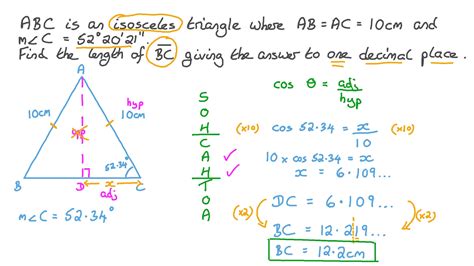 ABC is an isosceles triangle where AB = AC = 10cm and
m∠C = 52°20'21".
Find the length of B̅C̅ giving the answer to one decimal place.
A
10cm
hyp
10cm
opp
52.34°
B
D
x
C
adj
m∠C = 52.34°
S
O
H
C
A
H
T
O
A
cos θ = adj/hyp
(x10) cos 52.34 = x/10 (x10)
10 x cos 52.34 = x
x = 6.109...
DC = 6.109...
(x2) (x2)
BC = 12.219...
BC = 12.2cm